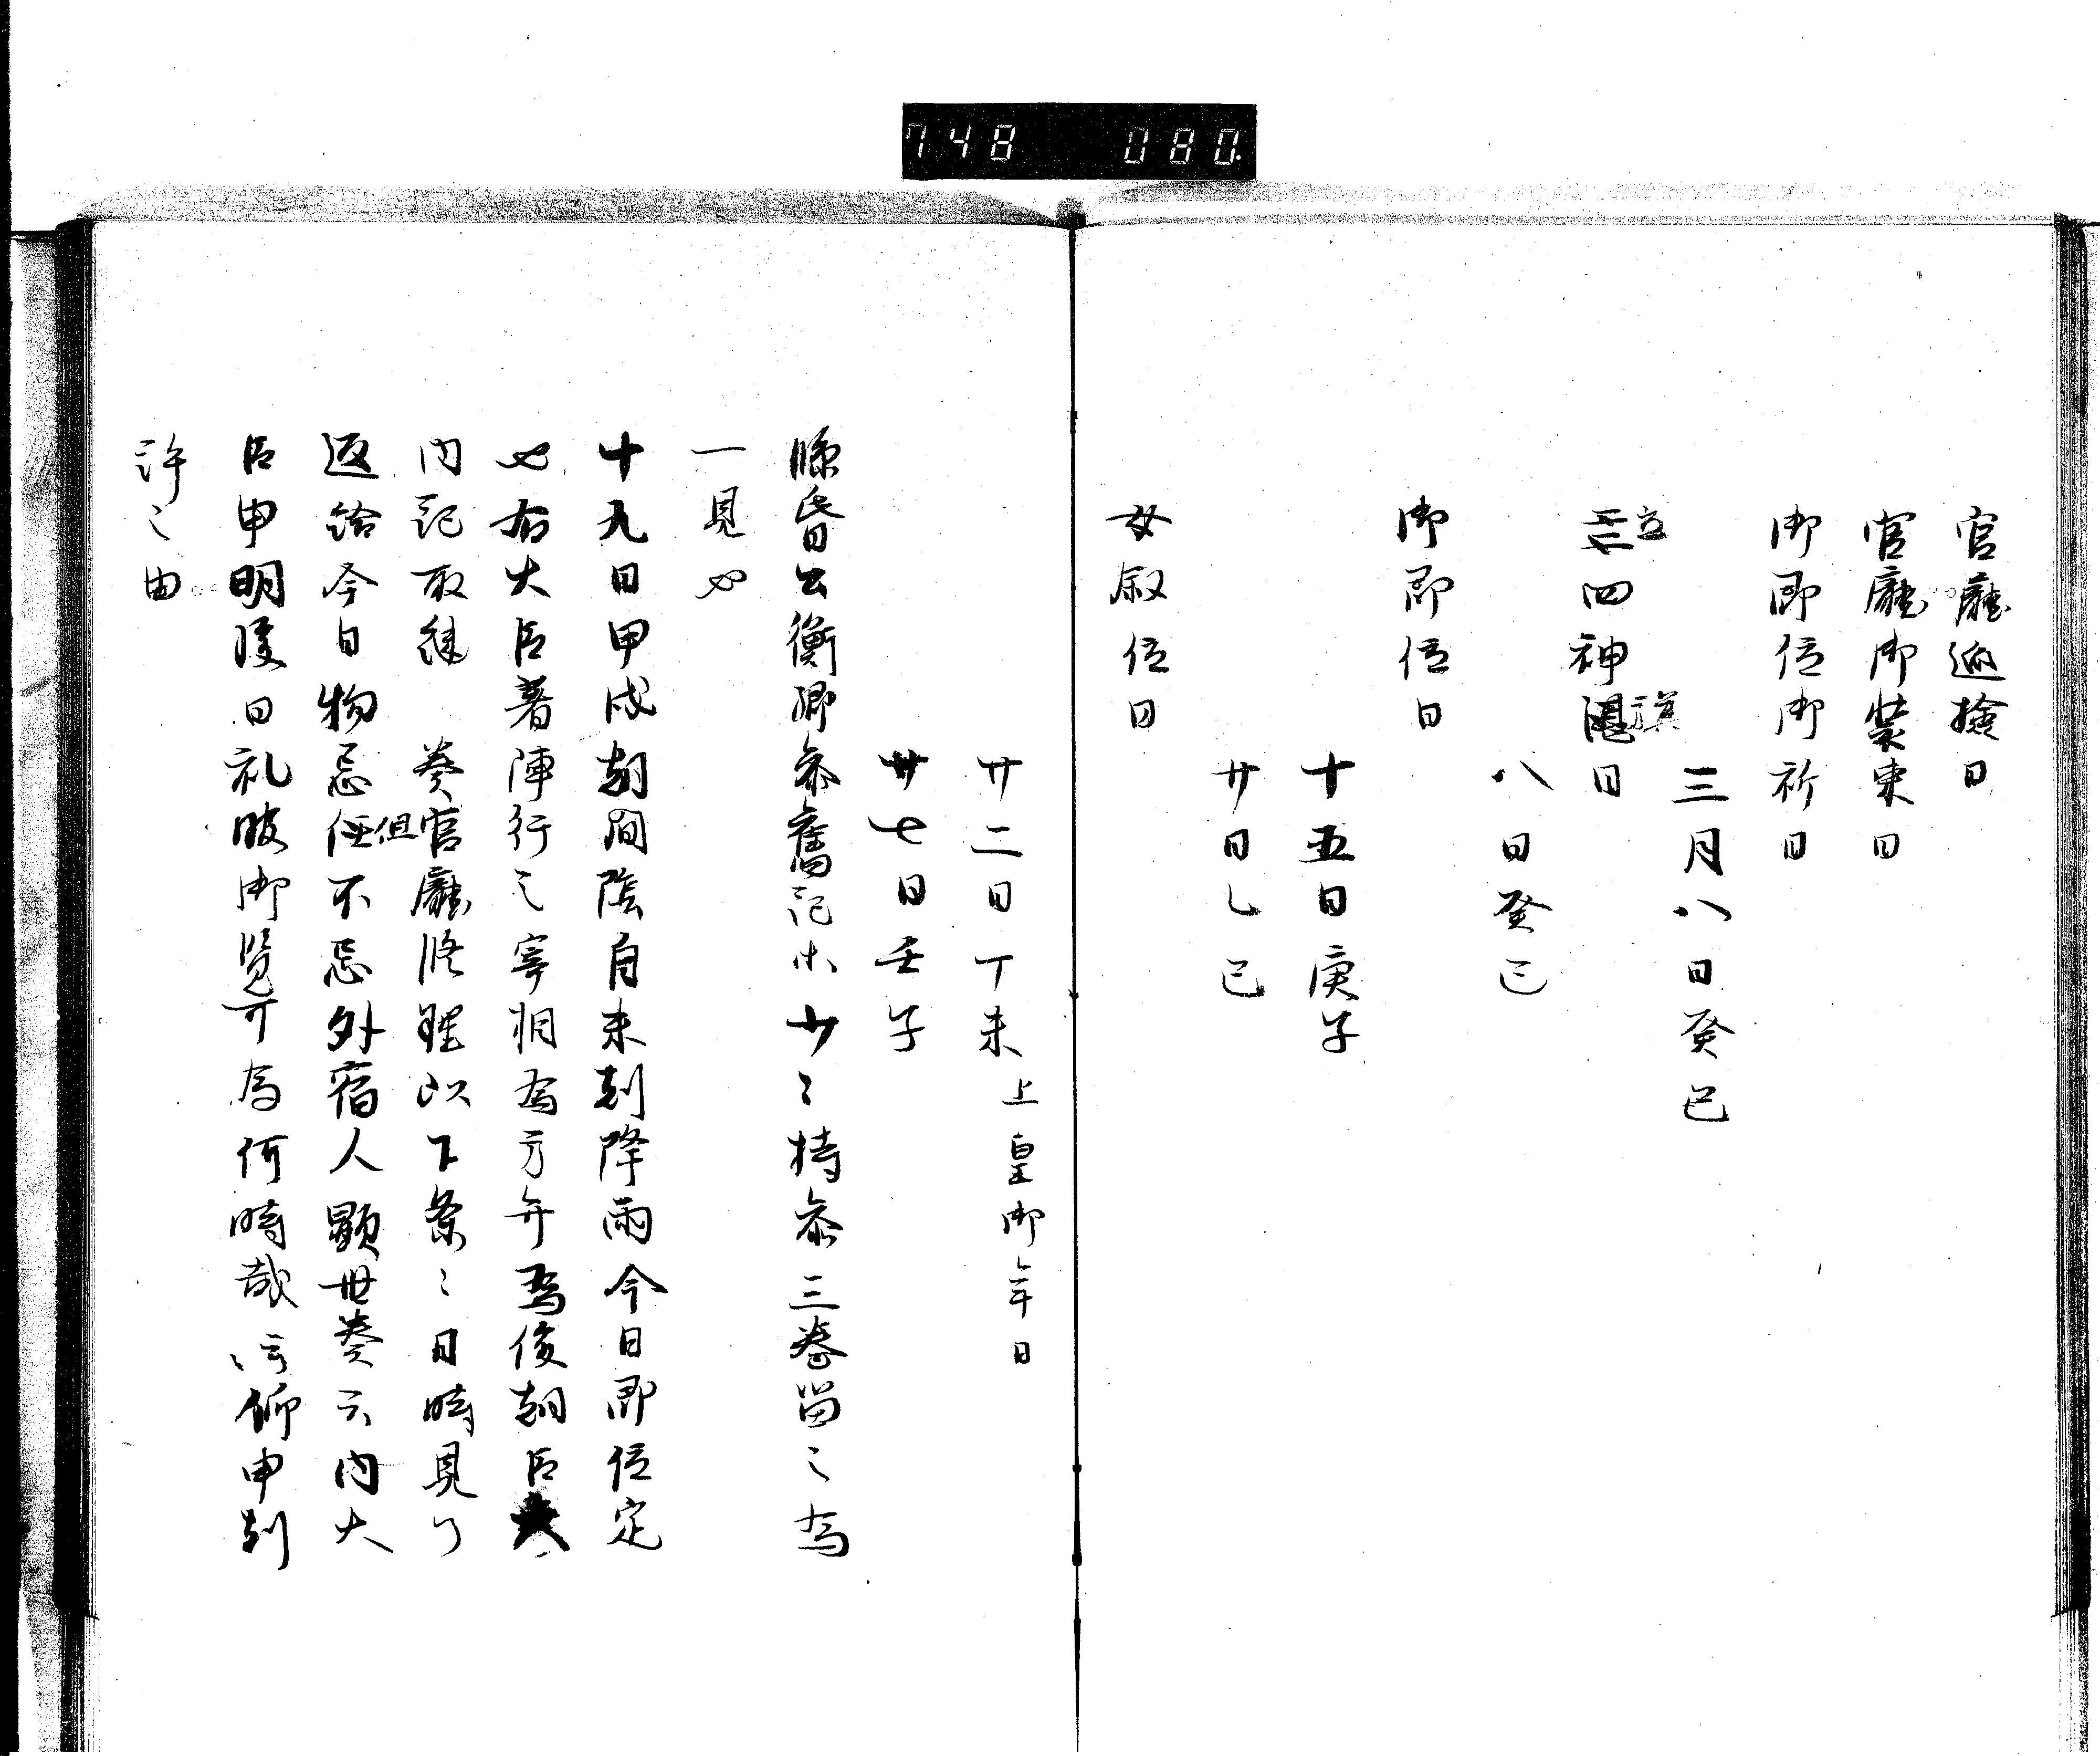 748 080.
官廳巡撿日
官廳御装束日
御即位御祈日
三月八日癸巳
立四神旗日
八日癸巳
御即位日
十五日庚子
廿日乙巳
女叙位日
廿二日丁未上皇御年日
廿七日壬子
臨昏公衡卿参舊記少々持参三巻留之為
一見也
十九日甲戌朝間陰自未刻降雨今日即位定
也右大臣著陣行之宰相為方弁為俊朝臣
内記取継 奏官廳修理以下条々日時見了
返給今日物忌但不忌外宿人顕世奏云内大
臣申明後日礼服御覧可為何時哉云仰申刻
許之由